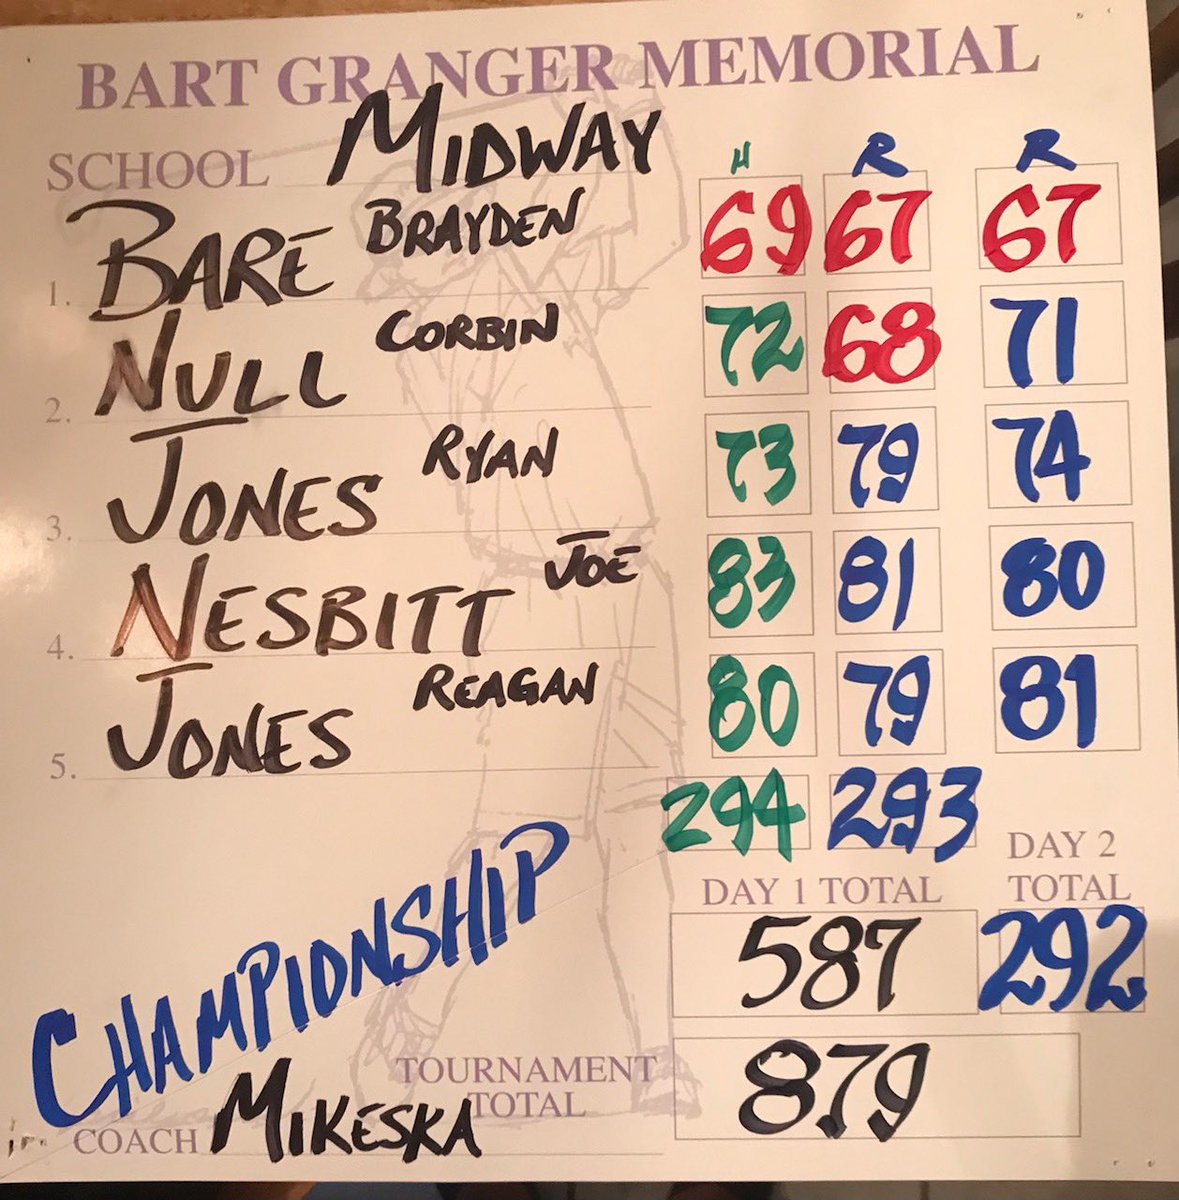 BART GRANGER MEMORIAL
SCHOOL MIDWAY H R R
1. BARE BRAYDEN 69 67 67
2. NULL CORBIN 72 68 71
3. JONES RYAN 73 79 74
4. NESBITT JOE 83 81 80
5. JONES REAGAN 80 79 81
294 293
DAY 1 TOTAL DAY 2 TOTAL
587 292
CHAMPIONSHIP
TOURNAMENT TOTAL 879
COACH MIKESKA